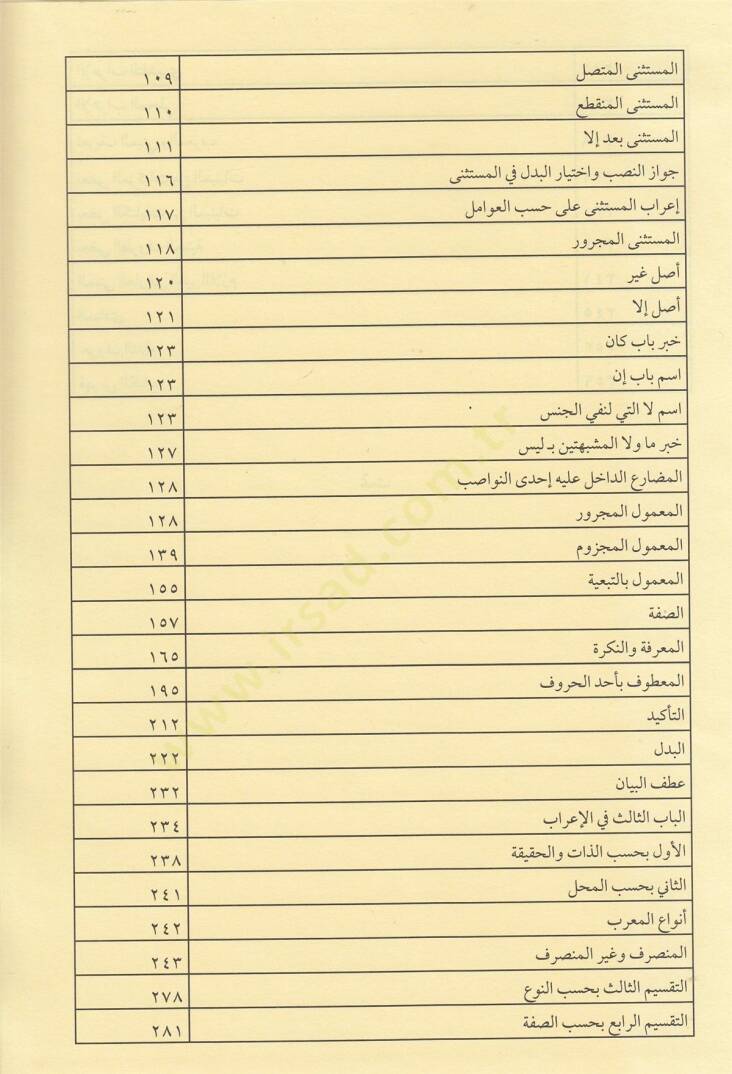 المستثنى المتصل ١٠٩
المستثنى المنقطع ١١٠
المستثنى بعد إلا ١١١
جواز النصب واختيار البدل في المستثنى ١١٦
إعراب المستثنى على حسب العوامل ١١٧
المستثنى المجرور ١١٨
أصل غير ١٢٠
أصل إلا ١٢١
خبر باب كان ١٢٣
اسم باب إن ١٢٣
اسم لا التي لنفي الجنس ١٢٣
خبر ما ولا المشبهتين بـ ليس ١٢٧
المضارع الداخل عليه إحدى النواصب ١٢٨
المعمول المجرور ١٢٨
المعمول المجزوم ١٣٩
المعمول بالتبعية ١٥٥
الصفة ١٥٧
المعرفة والنكرة ١٦٥
المعطوف بأحد الحروف ١٩٥
التأكيد ٢١٢
البدل ٢٢٢
عطف البيان ٢٣٢
الباب الثالث في الإعراب ٢٣٤
الأول بحسب الذات والحقيقة ٢٣٨
الثاني بحسب المحل ٢٤١
أنواع المعرب ٢٤٢
المنصرف وغير المنصرف ٢٤٣
التقسيم الثالث بحسب النوع ٢٧٨
التقسيم الرابع بحسب الصفة ٢٨١
www.irsad.com.tr